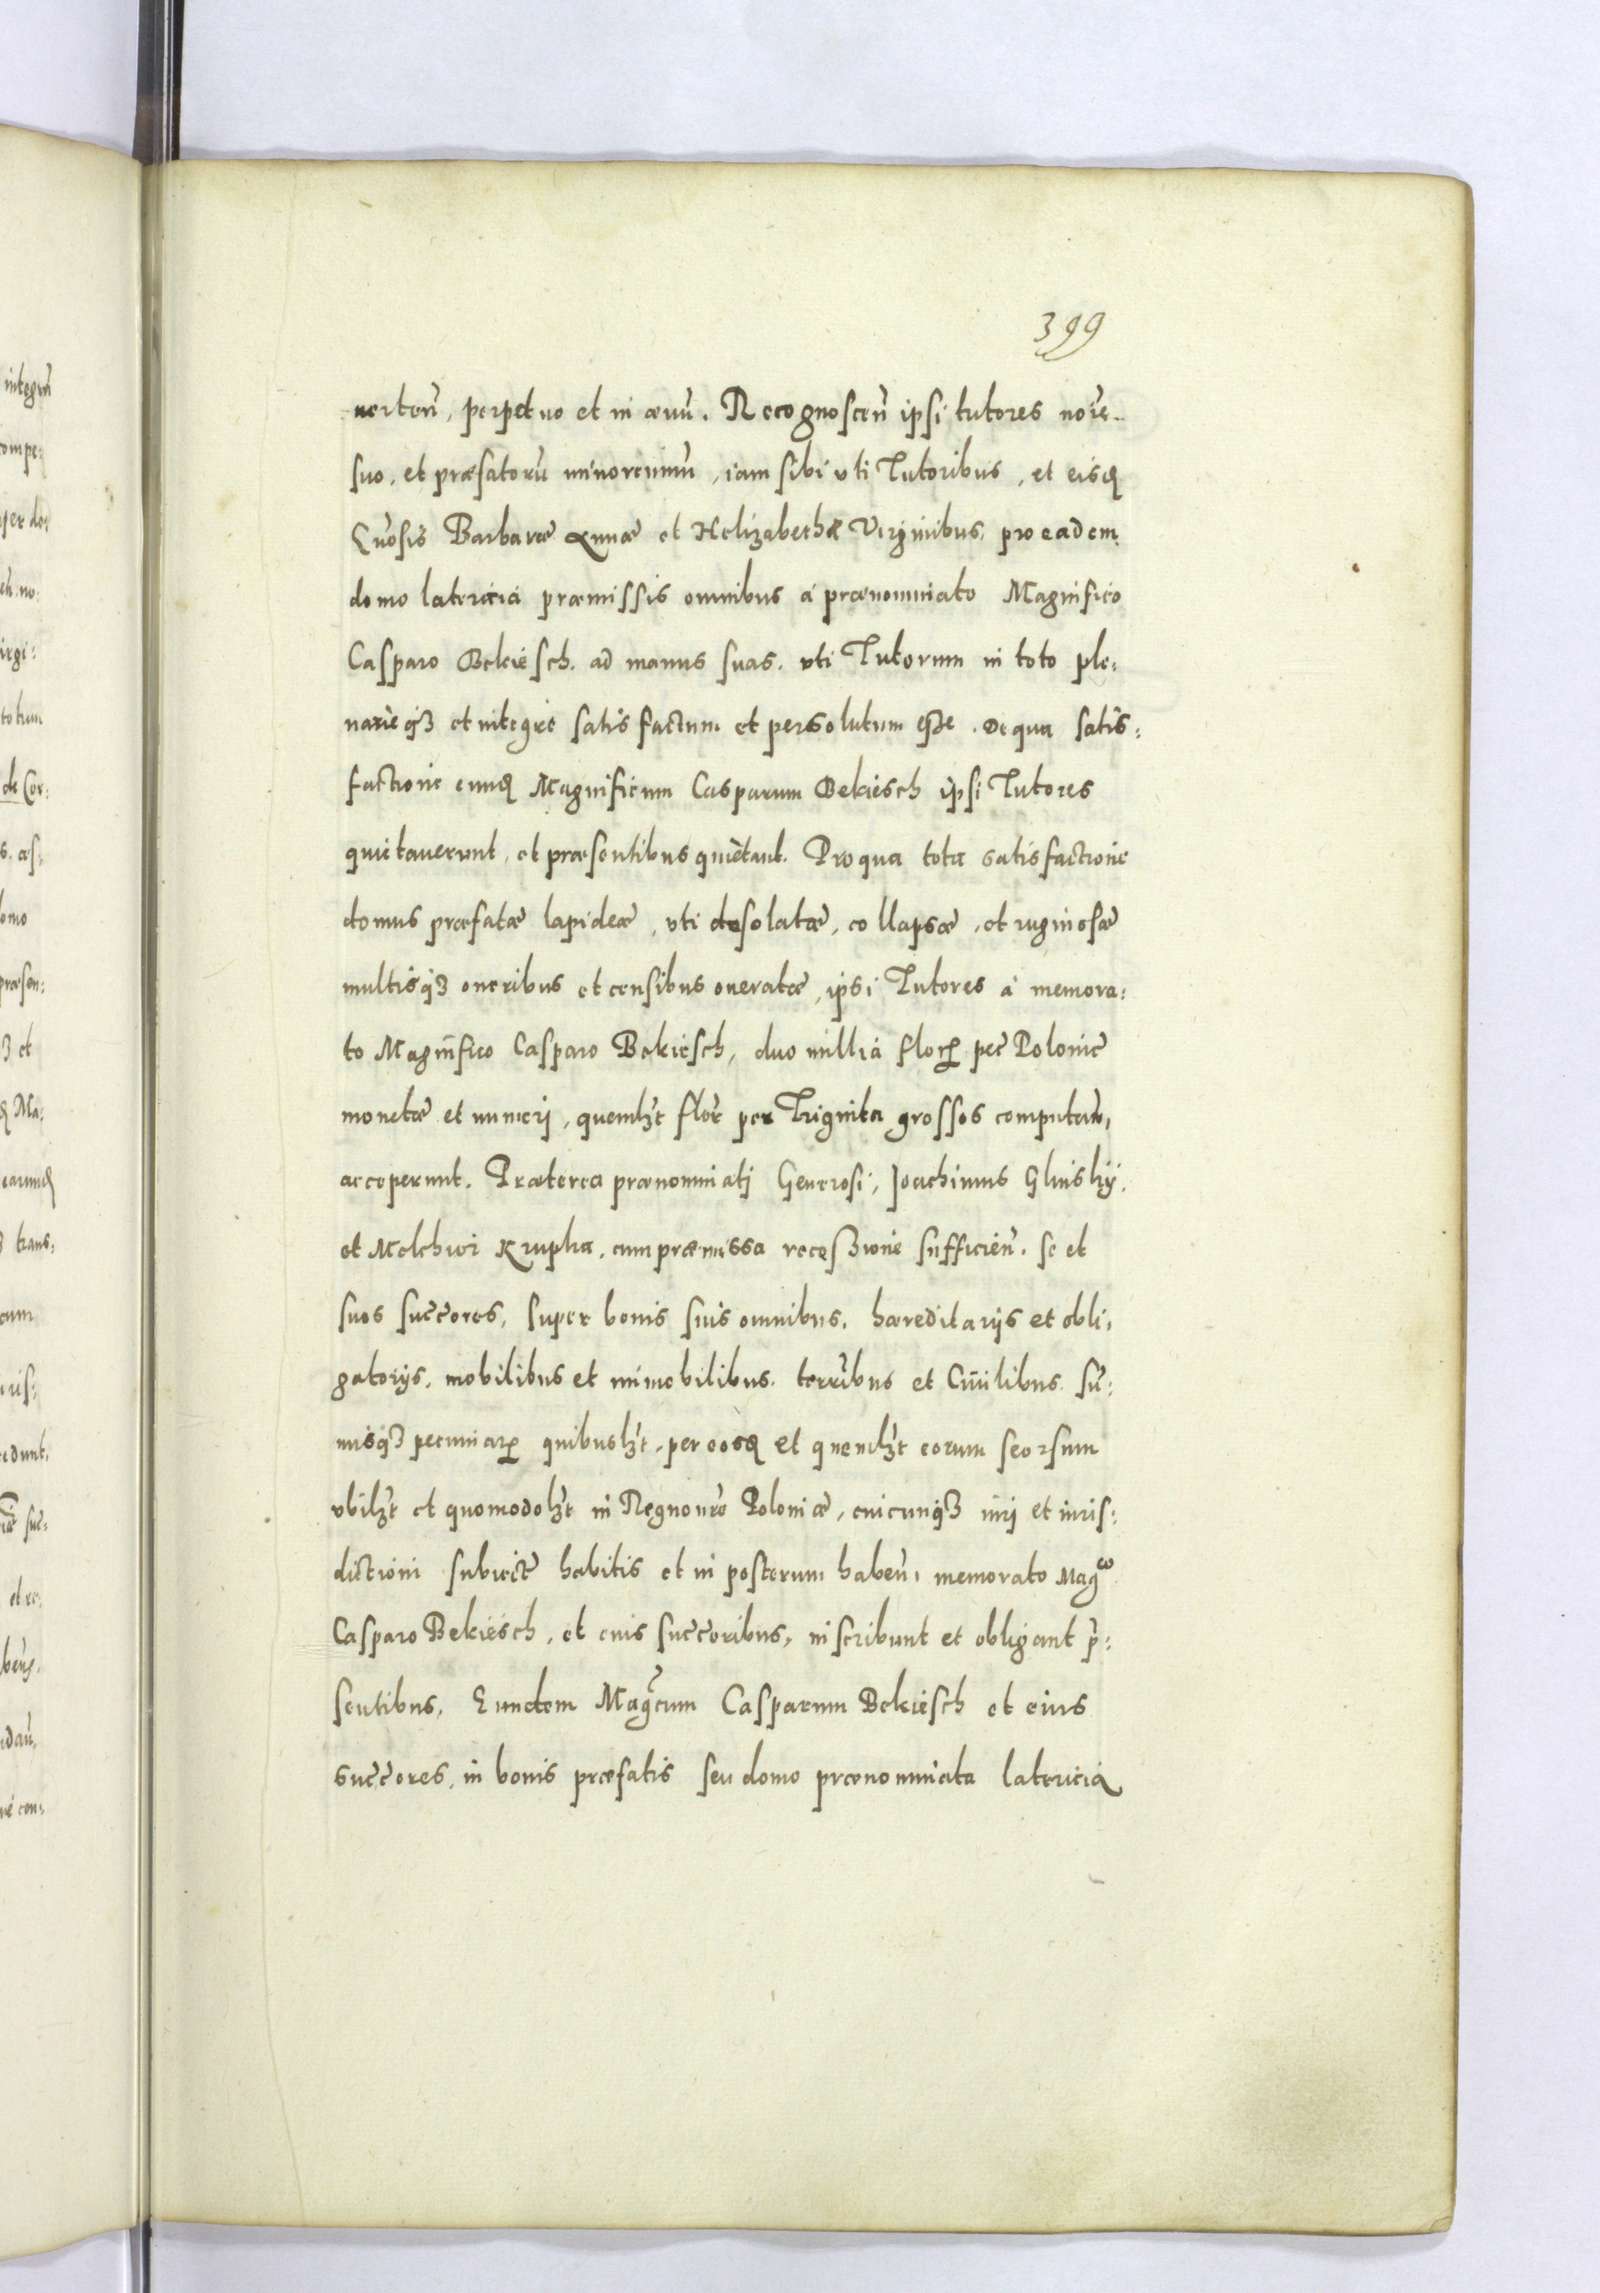 399
uerten̄, perpetuo et in æuu͂. Recognoscen̄ ipsi tutores noīe
suo, et præfatoru͂ minorennu͂, iam sibi vti Tutoribus, et eisđ
Gn̄osis Barbaræ Annæ et Helizabethæ Virginibus, pro eadem
domo latericia præmissis omnibus à prænominato Magnifico
Casparo Bekiesch. ad manus suas. vti Tutorum in toto ple:
narieq3 et integre satisfactum et persolutum esse. De qua satis:
factione eund̄ Magnificum Casparum Bekiesch ipsi Tutores
quietauerunt, et præsentibus quietant. Pro qua tota satisfactione
domus præfatæ lapideæ, vti desolatæ, collapsæ, et ruginosæ
multisq3 oneribus et censibus oneratæ, ipsi Tutores à memora:
to Magnifico Casparo Bekiesch, duo millia florꝝ pec̄ Polonic̄
monetæ et numeri, quemlꝫt flor̄ per Triginta grossos computan̄,
acceperunt. Præterea prænominatj Generosi, Joachimus Glinskÿ,
et Melchior Krupka, cum præmissa recessione sufficien̄. se et
suos succ̄ores, super bonis suis omnibus, hæreditarijs et obli:
gatorijs, mobilibus et immobilibus. terrib̄us et Ciuilibus. su͂:
misq3 pecuniarꝝ quibuslꝫt, per eosđ et quemlꝫt eorum seorsum
vbilꝫt et quomodolꝫt in Regno nr̄o Poloniæ, cuicunq3 iuri et iuris:
dictioni subiect̄ habitis et in posterum haben̄, memorato Magco
Casparo Bekiesch, et eius succ̄oribus, inscribunt et obligant p̄:
sentibus, Eundem Magc̄um Casparum Bekiesch et eius
succ̄ores, in bonis præfatis seu domo prænominata latericia